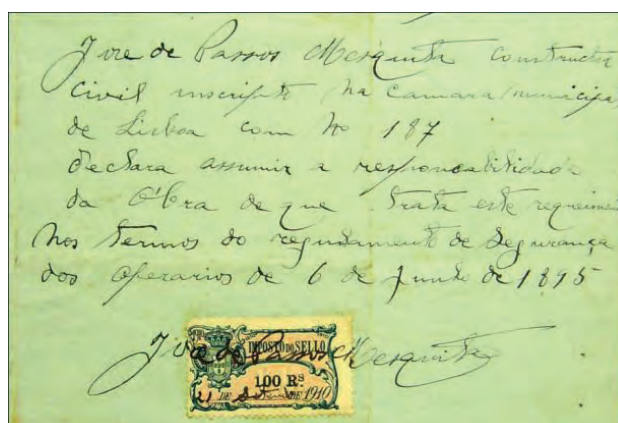 José de Passos Mesquita constructor
civil inscripto na camara municipa
de Lisboa com No 187
declara assumir a responsabilidade
da Obra de que trata este requeimen
nos termos do regulamento de Segurança
dos Operarios de 6 de Junho de 1895
José de Passos Mesquita
IMPOSTO DO SELLO
100 Rs.
21 DE Setem DE 1910